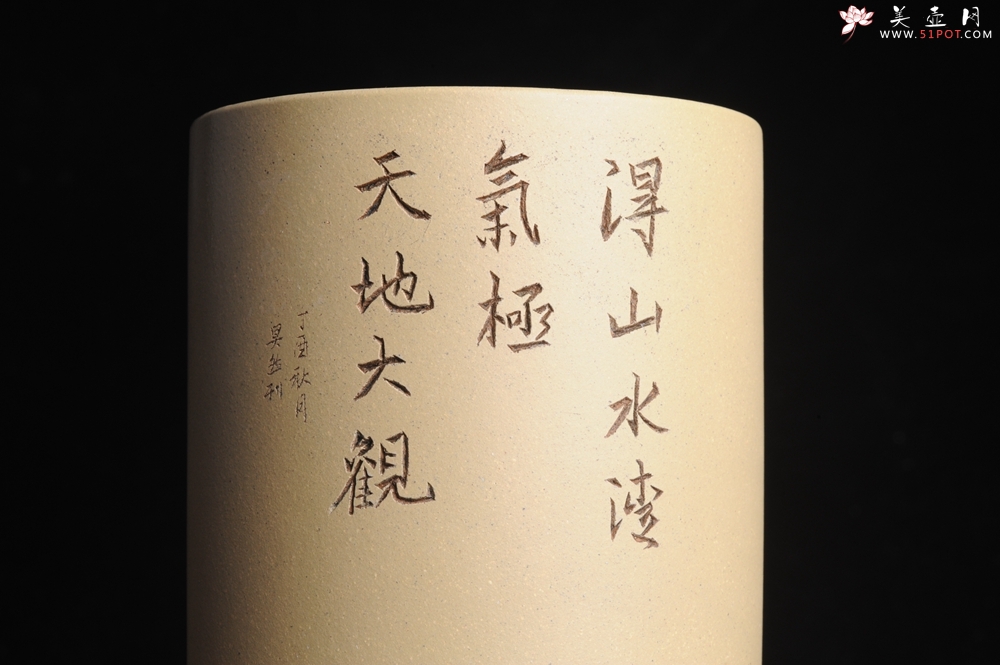 美壶网
WWW.51POT.COM
得山水清
氣極
天地大觀
丁酉秋月
昊然刊